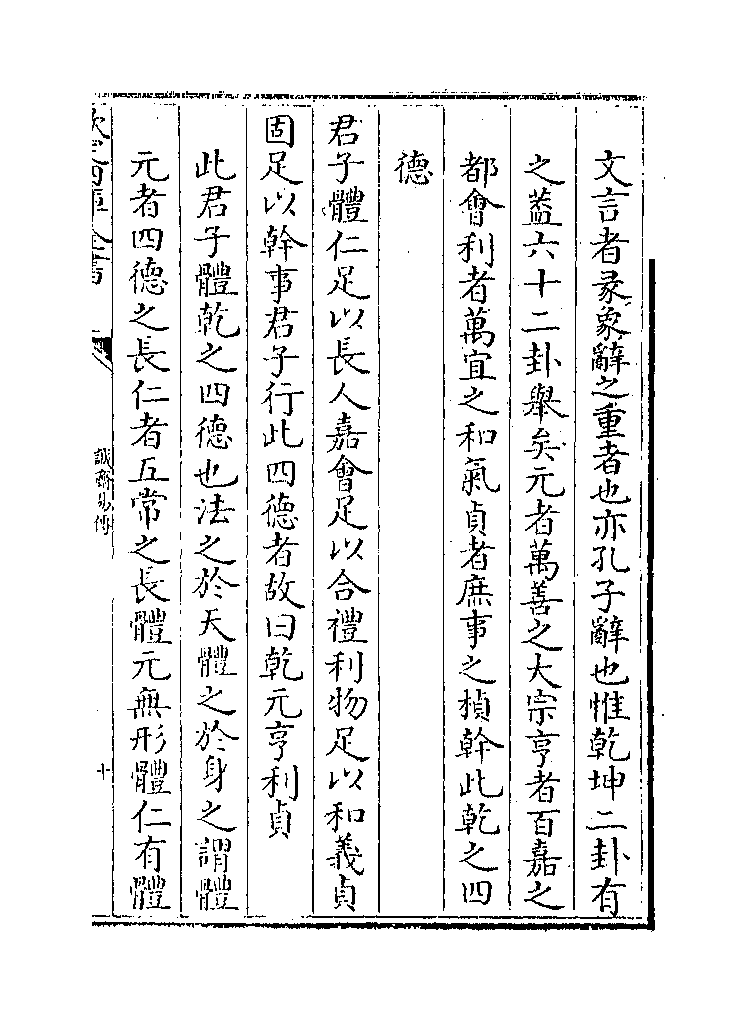 文言者彖象辭之重者也亦孔子辭也惟乾坤二卦有
之葢六十二卦舉矣元者萬善之大宗亨者百嘉之
都會利者萬宜之和氣貞者庶事之楨幹此乾之四
德
君子體仁足以長人嘉會足以合禮利物足以和義貞
固足以幹事君子行此四德者故曰乾元亨利貞
此君子體乾之四德也法之於天體之於身之謂體
元者四德之長仁者五常之長體元無形體仁有體
欽定四庫全書
誠齋易傳
十